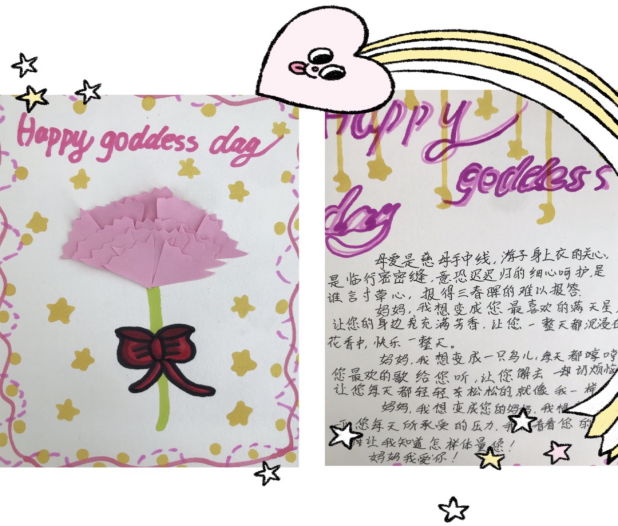 Happy goddess day
Happy
goddess
day
母爱是慈母手中线,游子身上衣的关心,
是临行密密缝,意恐迟迟归的细心呵护,是
谁言寸草心,报得三春晖的难以报答.
妈妈,我想变成您最喜欢的满天星,
让您的身边充满芳香.让您一整天都沉浸在
花香中,快乐一整天。
妈妈,我想变成一只鸟儿,每天都
您最欢的歌给您听,让您解去一切烦恼
让您每天都轻轻松松的就像我一样
妈妈,我想变成您的 我
您每天所承受的压力, 看看您的
让我知道怎样体量您!
妈妈我爱你!